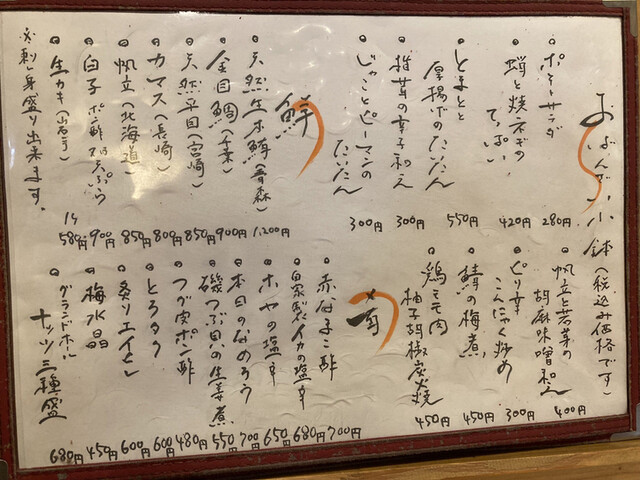 おばんざい小鉢(税込み価格です)
ポテトサラダ 280円
蛸と焼ネギのてっぱい 420円
とまとと厚揚げのたいたん 550円
椎茸の辛子和え 300円
じゃことピーマンのたいたん 300円
帆立と若芽の胡麻味噌和え 400円
ピリ辛こんにゃく炒め 300円
鯖の梅煮 450円
鶏モモ肉柚子胡椒炭火焼 450円
鮮
天然生本鮪(青森) 1,200円
金目鯛(千葉) 900円
天然平目(宮崎) 850円
カマス(長崎) 800円
帆立(北海道) 850円
白子 ポン酢 又は天ぷら 900円
生カキ(岩手) 1ケ 580円
※刺し身盛り出来ます。
肴
赤なまこ酢 700円
自家製イカの塩辛 680円
ホヤの塩辛 650円
本日のなめろう 700円
磯つぶ貝の生姜煮 550円
フグ皮ポン酢 480円
とろタク 600円
炙りエイヒレ 600円
梅水晶 450円
グランドホール ナッツ三種盛 680円